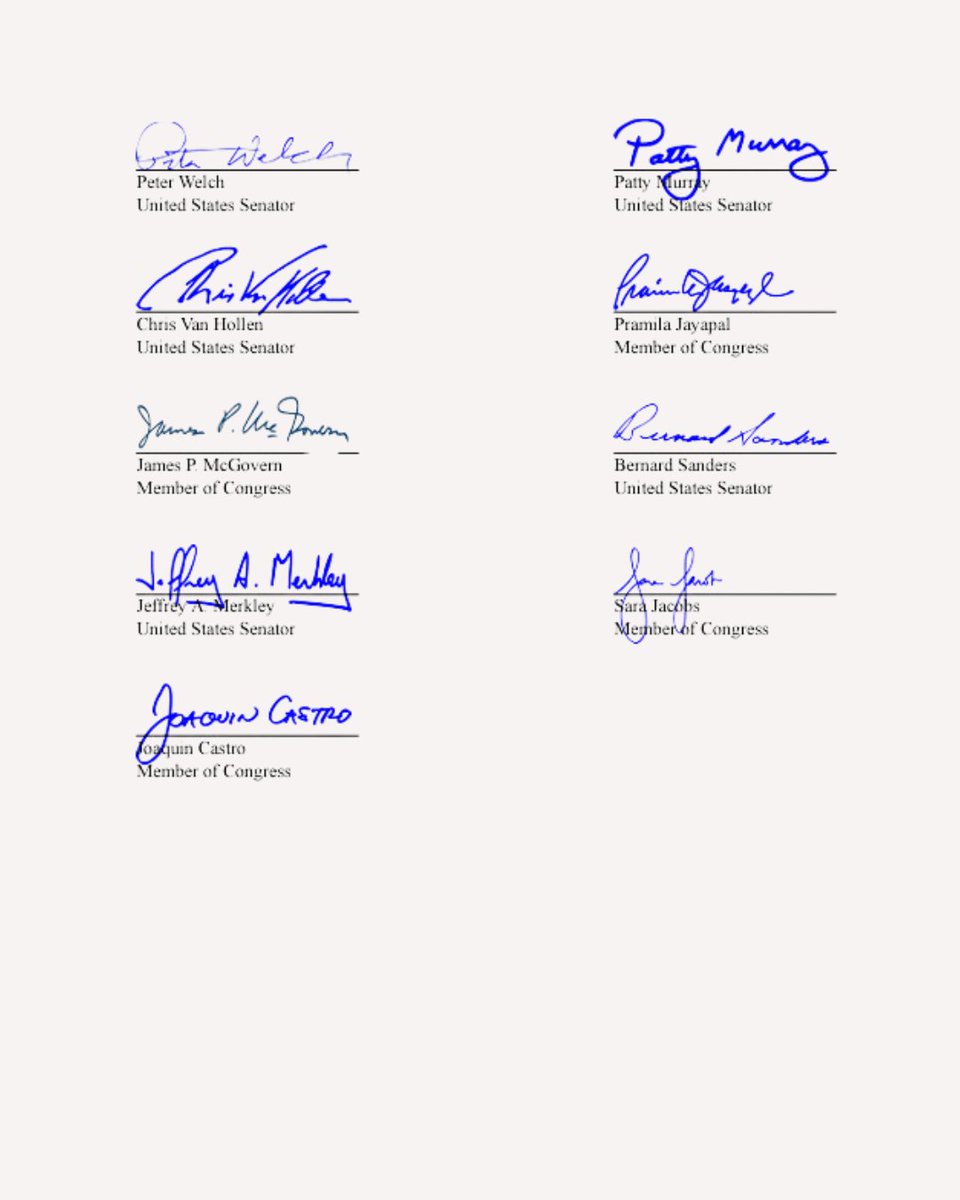 Peter Welch
Peter Welch
United States Senator
Patty Murray
Patty Murray
United States Senator
Chris Van Hollen
Chris Van Hollen
United States Senator
Pramila Jayapal
Pramila Jayapal
Member of Congress
James P. McGovern
James P. McGovern
Member of Congress
Bernard Sanders
Bernard Sanders
United States Senator
Jeffrey A. Merkley
Jeffrey A. Merkley
United States Senator
Sara Jacobs
Sara Jacobs
Member of Congress
Joaquin Castro
Joaquin Castro
Member of Congress